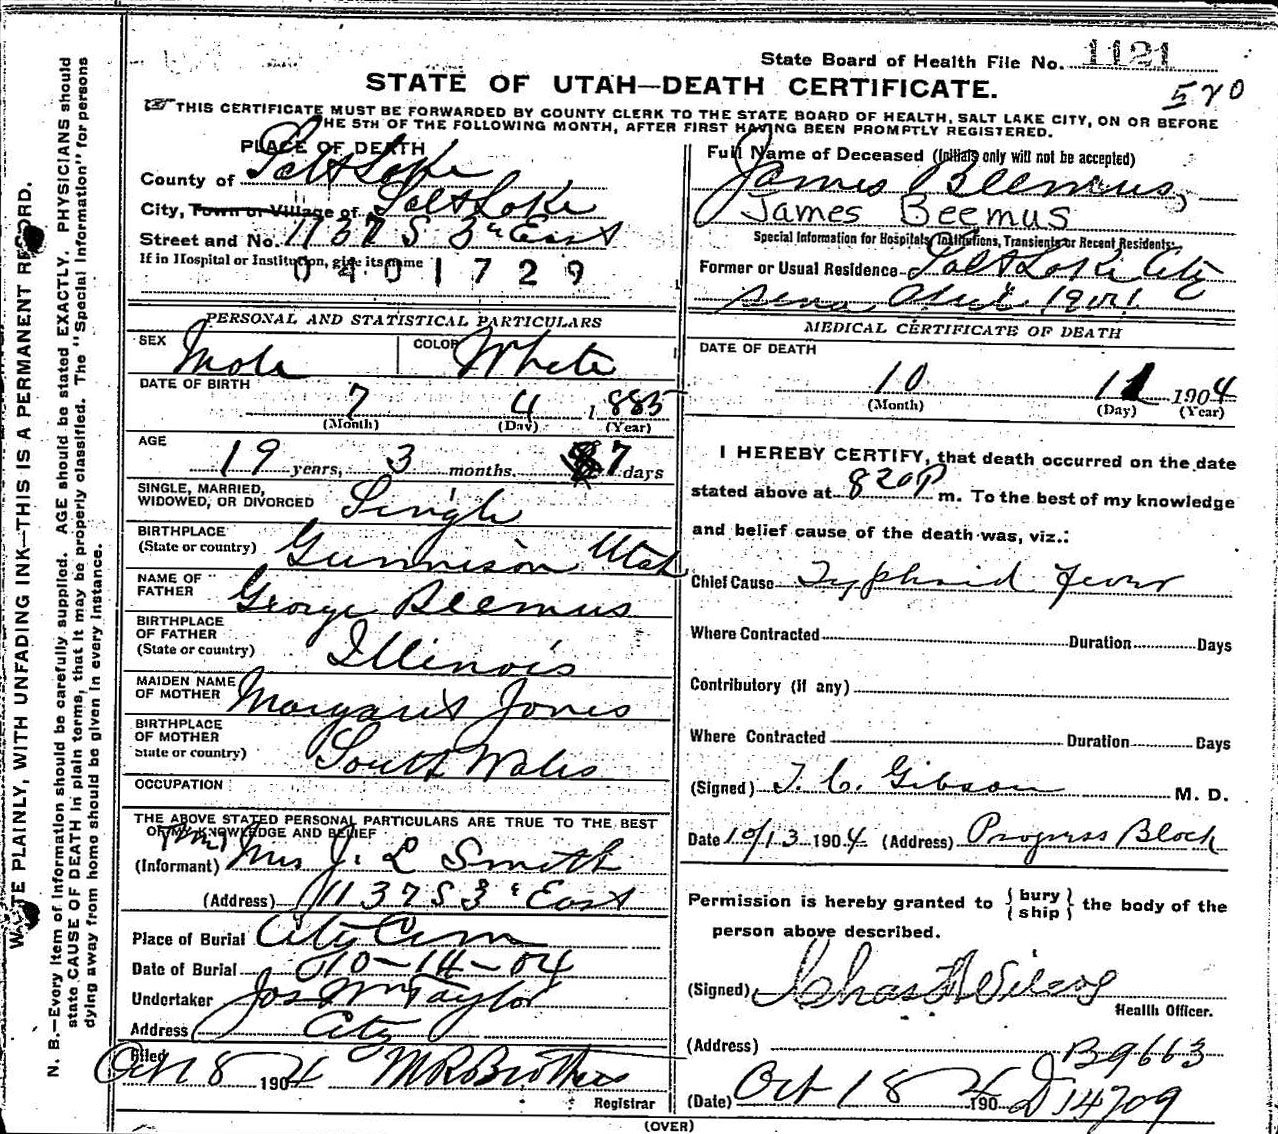 State Board of Health File No. 1121
STATE OF UTAH—DEATH CERTIFICATE.
570
THIS CERTIFICATE MUST BE FORWARDED BY COUNTY CLERK TO THE STATE BOARD OF HEALTH, SALT LAKE CITY, ON OR BEFORE
HE 5TH OF THE FOLLOWING MONTH, AFTER FIRST HAVING BEEN PROMPTLY REGISTERED.
PLACE OF DEATH
County of Salt Lake
City, Town or Village of Salt Lake
Street and No. 1137 S 3rd East
If in Hospital or Institution, give its name
0401729
PERSONAL AND STATISTICAL PARTICULARS
SEX Male COLOR White
DATE OF BIRTH
7 4 1885
(Month) (Day) (Year)
AGE
19 years, 3 months. 7 days
SINGLE, MARRIED,
WIDOWED, OR DIVORCED Single
BIRTHPLACE
(State or country) Gunnison Utah
NAME OF
FATHER George Beemus
BIRTHPLACE
OF FATHER
(State or country) Illinois
MAIDEN NAME
OF MOTHER Margaret Jones
BIRTHPLACE
OF MOTHER
State or country) South Wales
OCCUPATION
THE ABOVE STATED PERSONAL PARTICULARS ARE TRUE TO THE BEST
OF MY KNOWLEDGE AND BELIEF
(Informant) Mrs J. L Smith
(Address) 1137 S 3rd East
Place of Burial City Cem
Date of Burial 10-14-04
Undertaker Jos Wm Taylor
Address City
Filed Oct 18 1904 M R Brothers
Registrar
Full Name of Deceased (Initials only will not be accepted)
James Beemus,
James Beemus
Special Information for Hospitals, Institutions, Transients or Recent Residents:
Former or Usual Residence Salt Lake City
1901
MEDICAL CERTIFICATE OF DEATH
DATE OF DEATH
10 11 1904
(Month) (Day) (Year)
I HEREBY CERTIFY, that death occurred on the date
stated above at 820 P m. To the best of my knowledge
and belief cause of the death was, viz.:
Chief Cause Typhoid Fever
Where Contracted Duration Days
Contributory (if any)
Where Contracted Duration Days
(Signed) T. C. Gibson M. D.
Date 10/13 1904 (Address) Progress Block
Permission is hereby granted to { bury ship } the body of the
person above described.
(Signed) Chas F Wilcox
Health Officer.
(Address) B9663
(Date) Oct 18 1904 D14709
(OVER)
WRITE PLAINLY, WITH UNFADING INK—THIS IS A PERMANENT RECORD.
N. B.—Every item of information should be carefully supplied. AGE should be stated EXACTLY. PHYSICIANS should
state CAUSE OF DEATH in plain terms, that it may be properly classified. The "Special Information" for persons
dying away from home should be given in every instance.